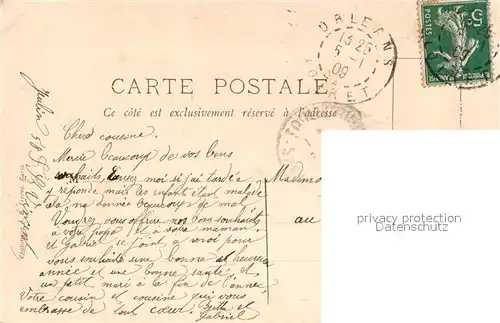 ORLEANS
13 25
5 - 1
09
LOIRET
5c
POSTES
CARTE POSTALE
Ce côté est exclusivement réservé à l'adresse
Chère cousine.
Merci beaucoup de vos bons
souhaits, moi si j'ai tardé a
M
Mademo
y reponde mais les enfants étant malade
cela ma donnée beaucoup de mal.
Voudrez vous offrire nos bons souhaits
au
à votre papa et a votre maman.
et Gabriel se joint a moi pour
vous souhaité une bonne et heureuse
année et une bonne santé et
un petit mari à la fin de l'année
Votre cousin et cousine qui vous
embrasse de tout cœur. et
Gabriel
privacy protection
watermark